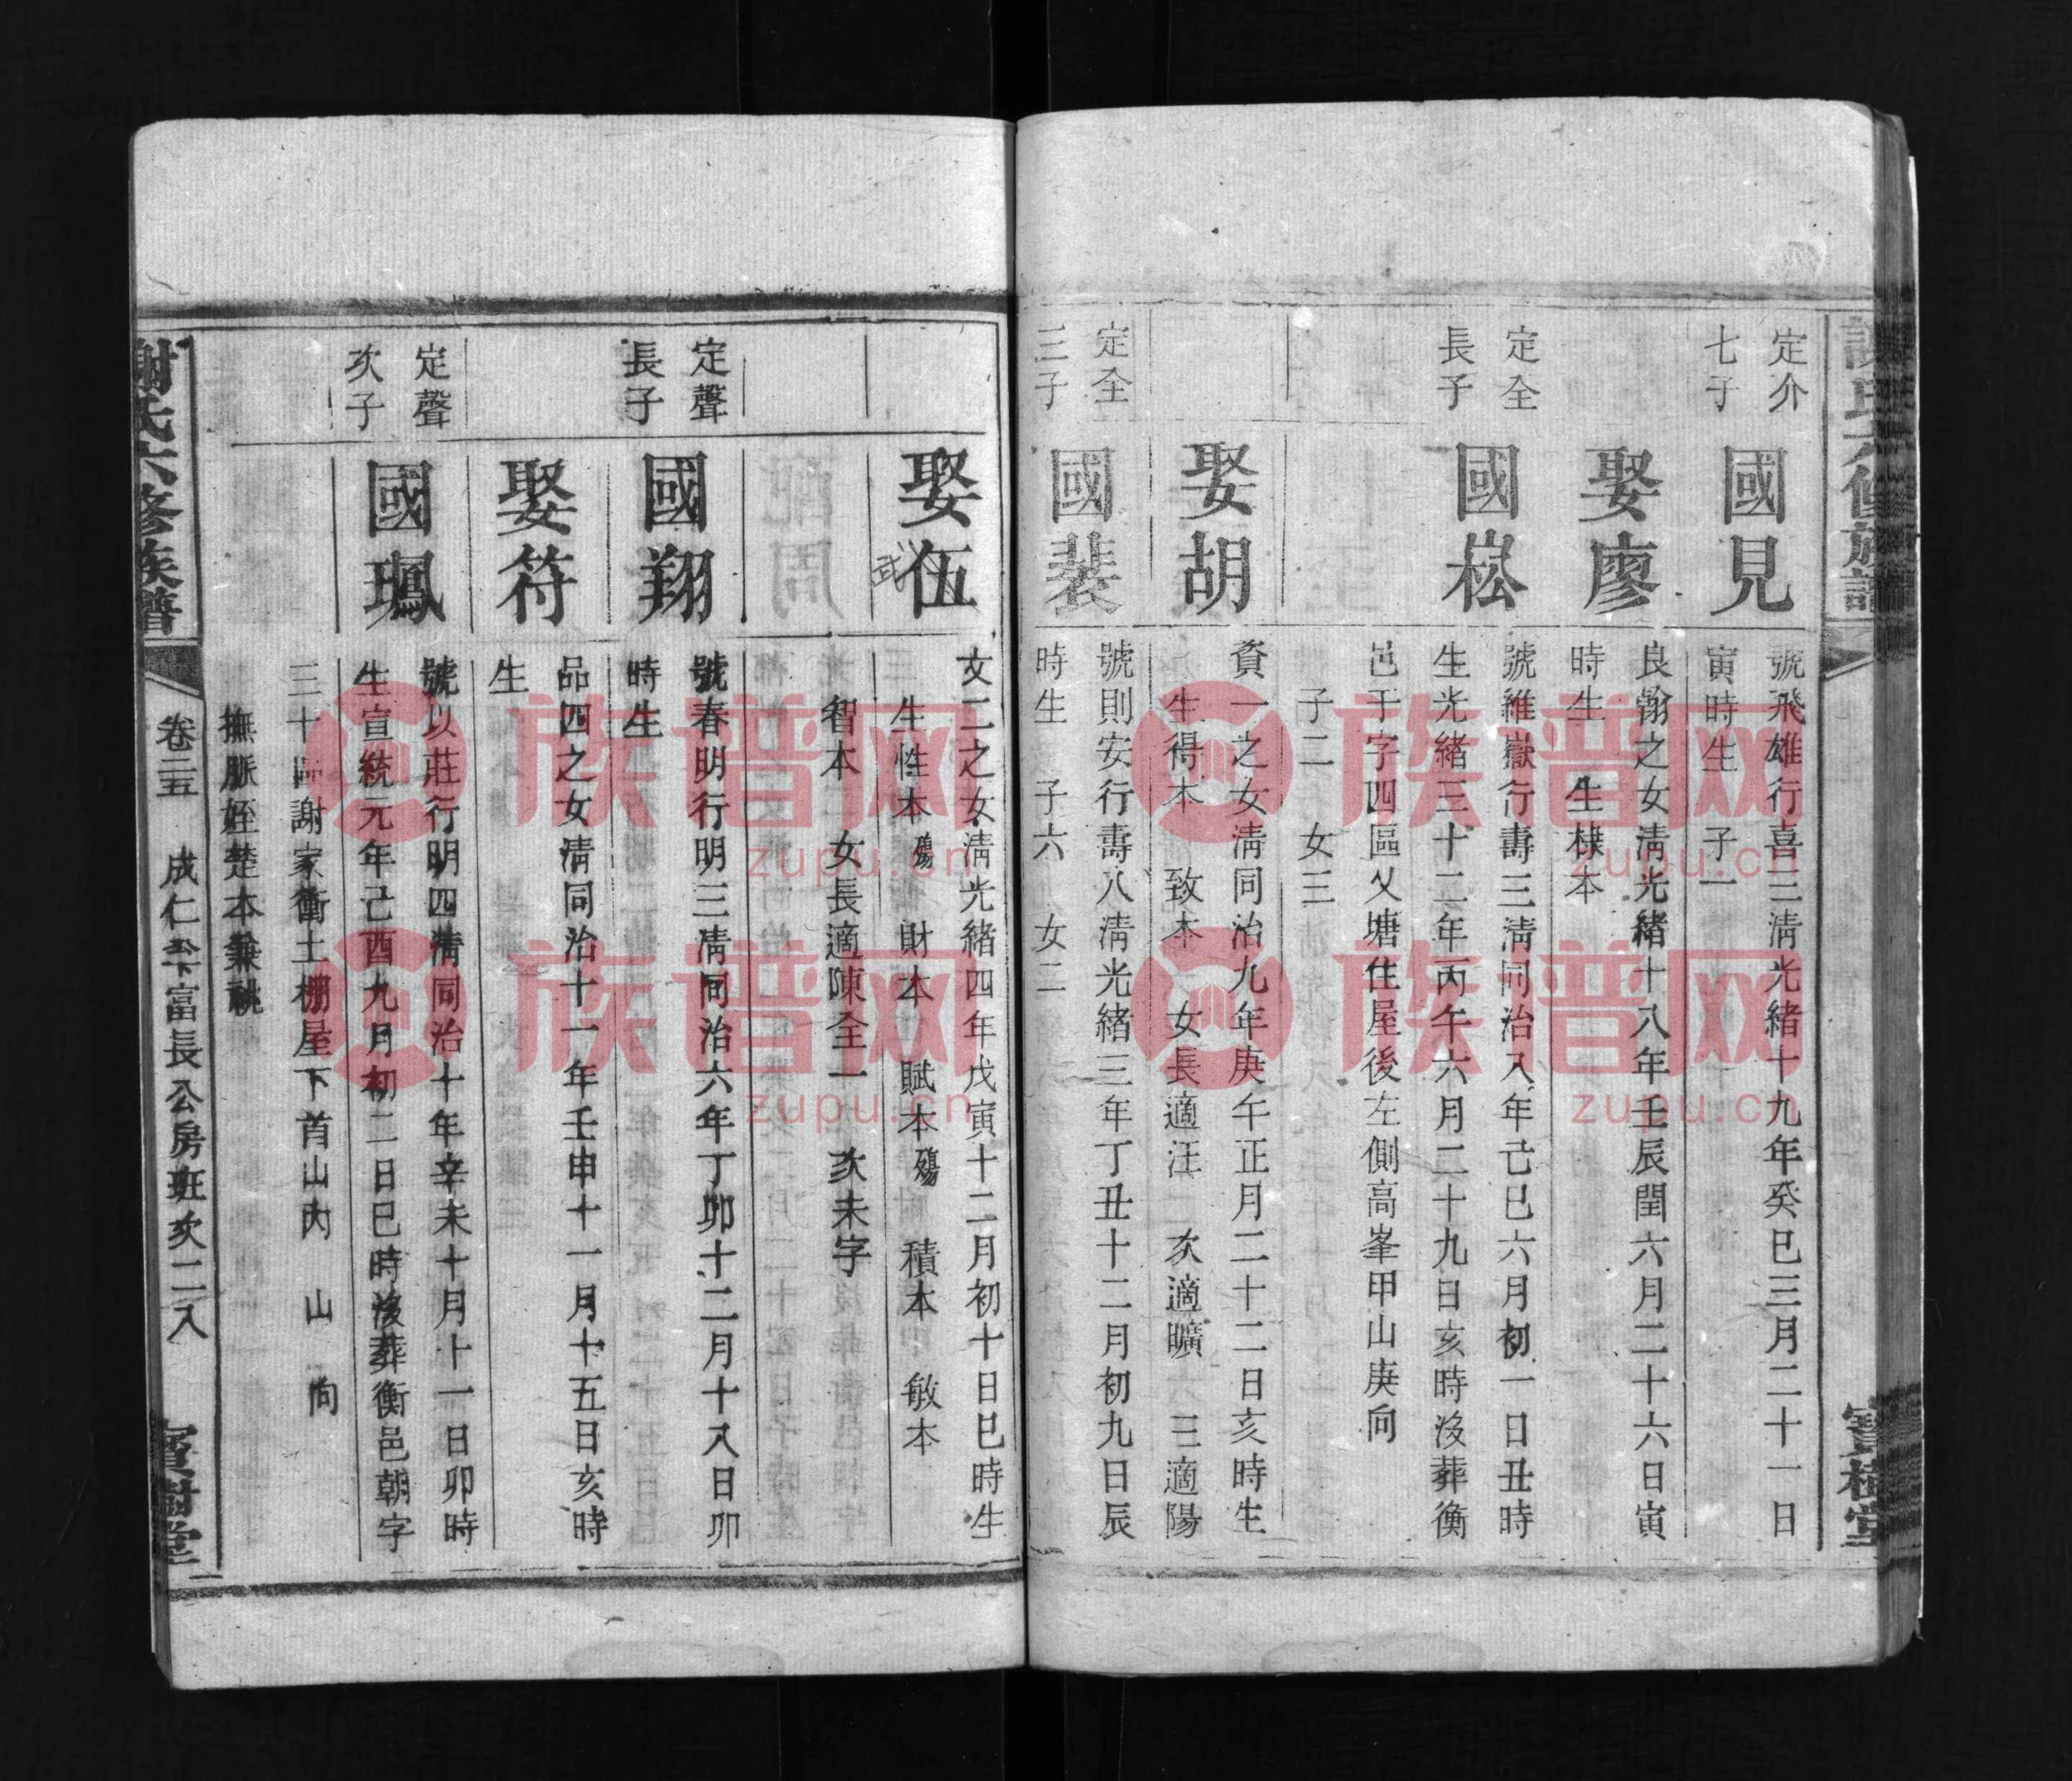 定介
七子
國見
號飛雄行喜三清光緒十九年癸巳三月二十一日
寅時生 子一
娶廖
良翰之女清光緒十八年壬辰閏六月二十六日寅
時生 生棣本
定全
長子
國崧
號維嶽行壽三清同治八年己巳六月初一日丑時
生光緒三十二年丙午六月二十九日亥時沒葬衡
邑干字四區父塘住屋後左側高峯甲山庚向
子二 女三
娶胡
資一之女清同治九年庚午正月二十二日亥時生
生得本 致本 女長適汪 次適曠 三適陽
定全
三子
國裴
號則安行壽八清光緒三年丁丑十二月初九日辰
時生 子六 女二
娶伍
文二之女清光緒四年戊寅十二月初十日巳時生
生性本殤 財本 賦本殤 積本 敏本
智本 女長適陳全一 次未字
定聲
長子
國翔
號春明行明三清同治六年丁卯十二月十八日卯
時生
娶符
品四之女清同治十一年壬申十一月十五日亥時
生
定聲
次子
國鳳
號以莊行明四清同治十年辛未十月十一日卯時
生宣統元年己酉九月初二日巳時沒葬衡邑朝字
三十區謝家衝土棚屋下首山內 山 向
撫胍姪楚本兼祧
謝氏六修族譜
卷二五 成仁公下富長公房班次二八
寶樹堂
謝氏六修族譜
寶樹堂
族谱网
zupu.cn
族谱网
zupu.cn
族谱网
zupu.cn
族谱网
zupu.cn